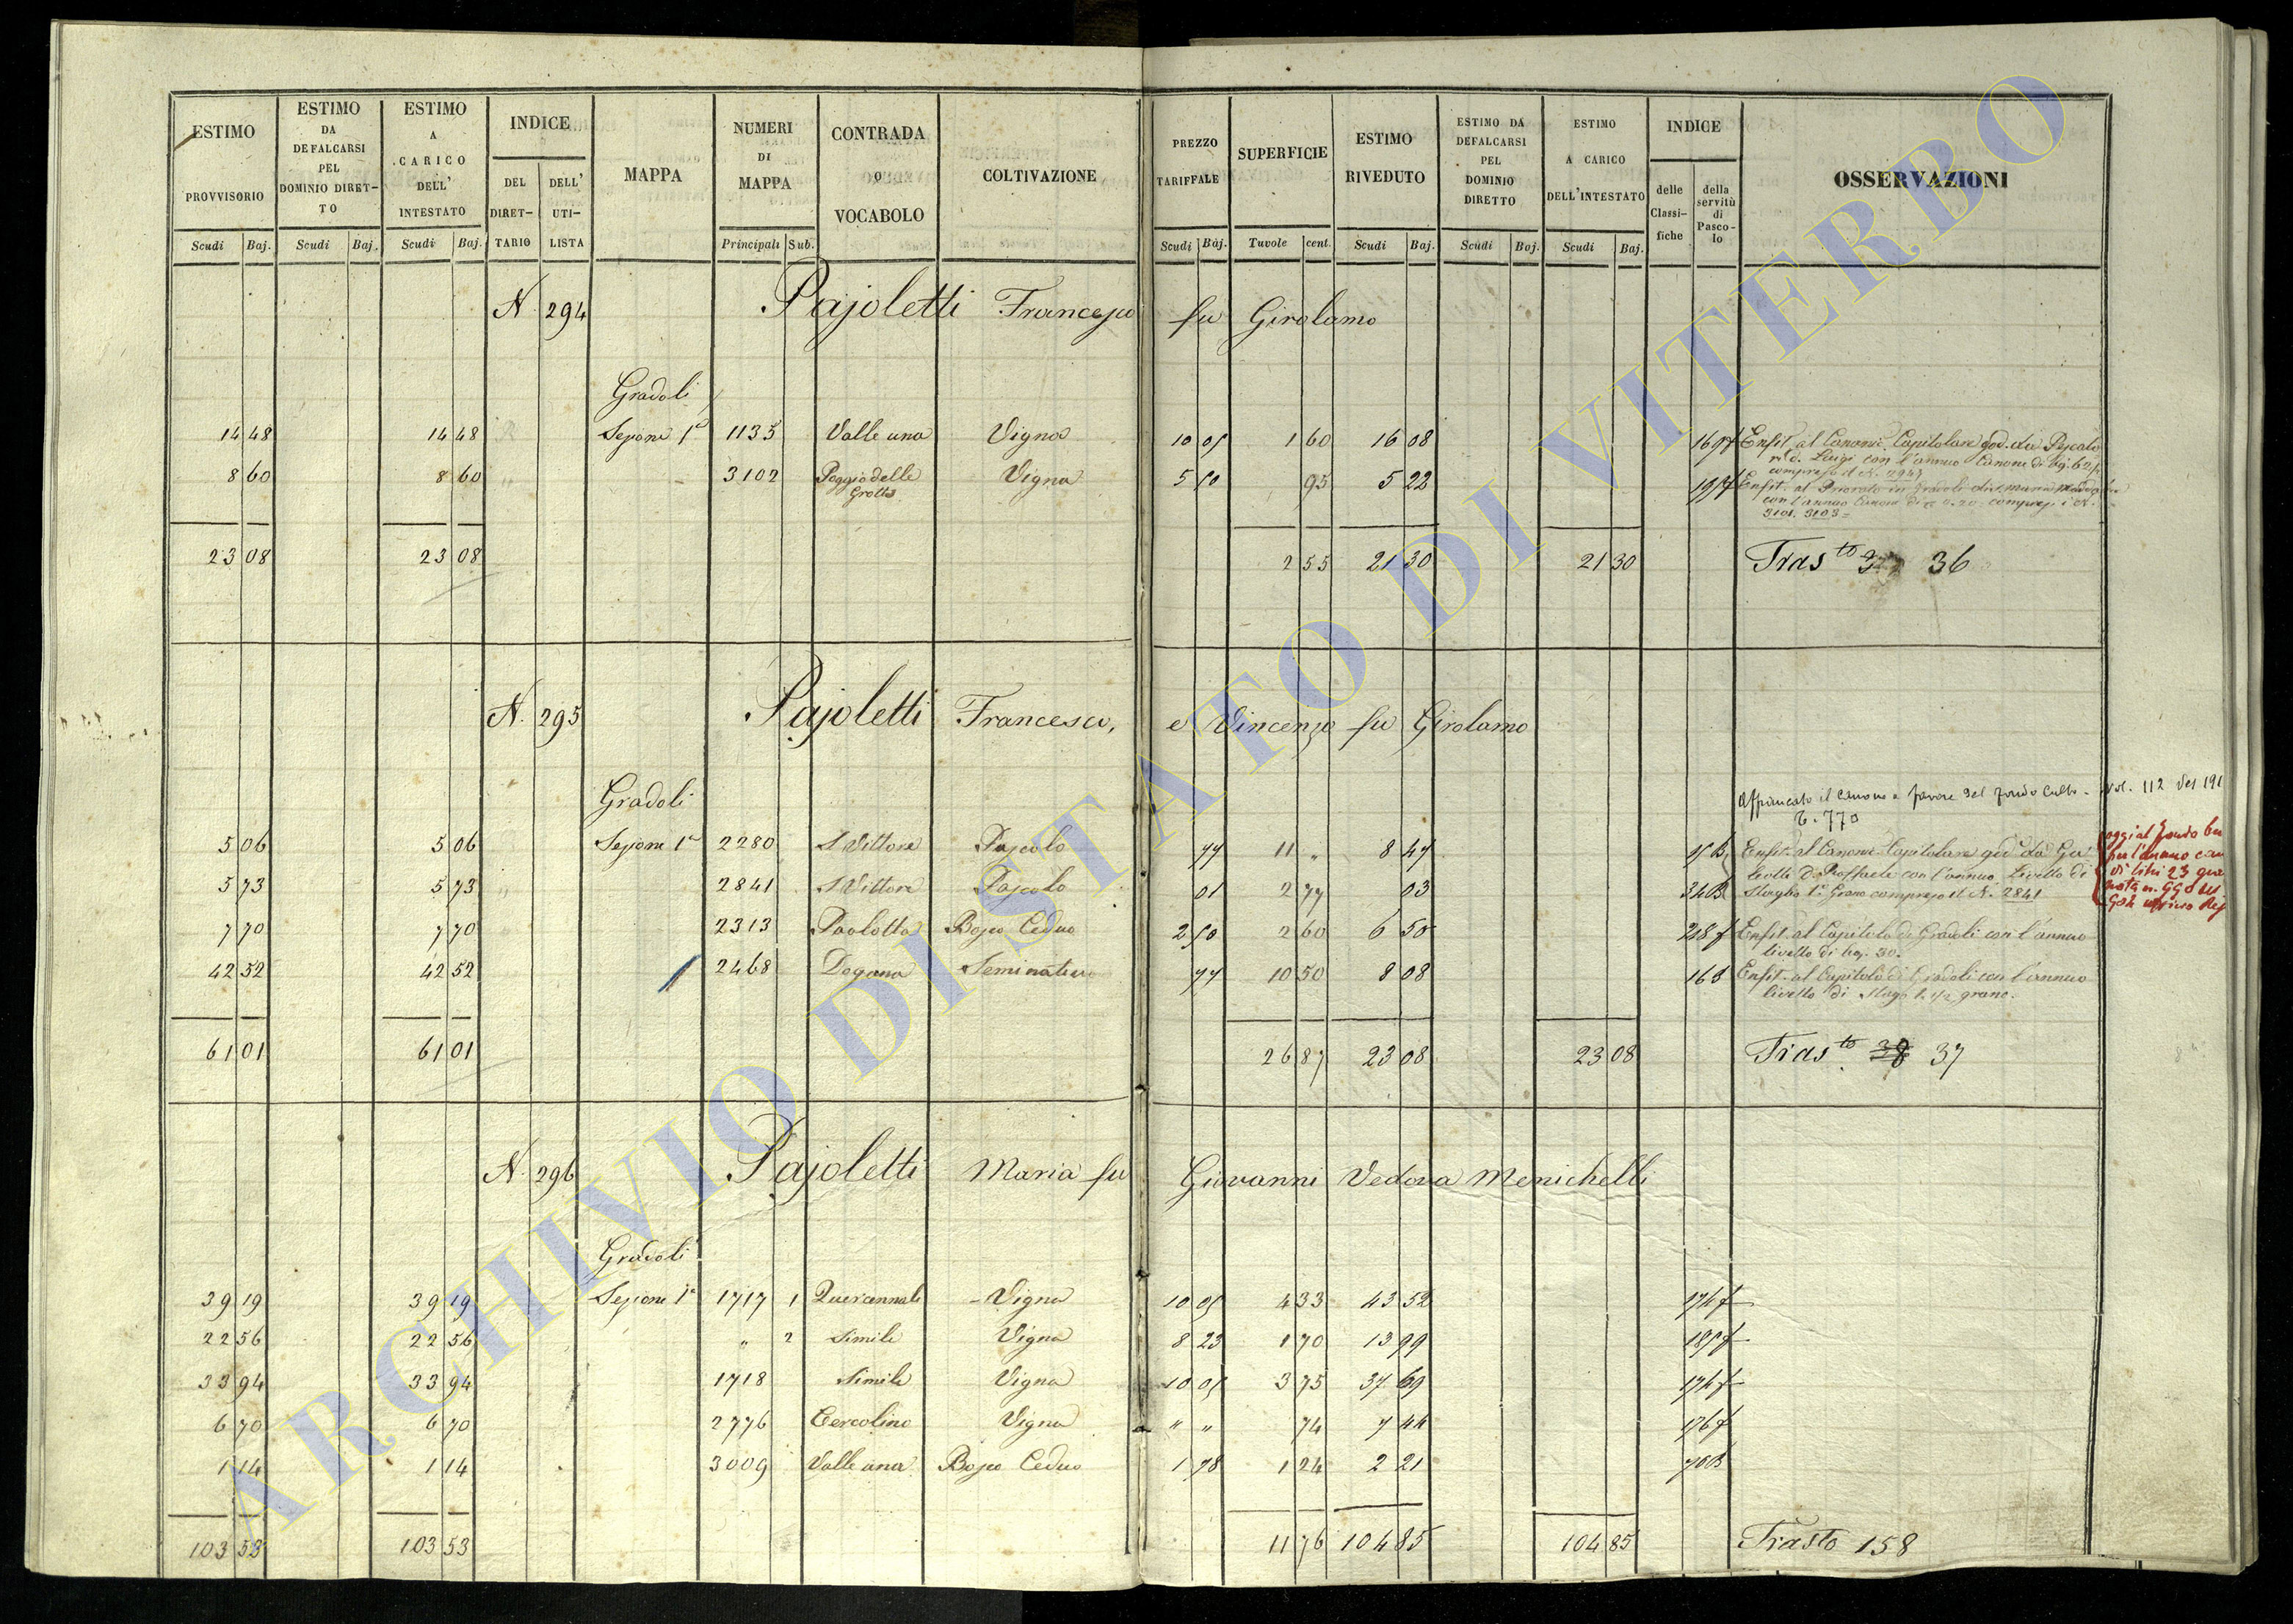 ESTIMO PROVVISORIO | ESTIMO DA DEFALCARSI PEL DOMINIO DIRETTO | ESTIMO A CARICO DELL' INTESTATO | INDICE DEL DIRETTARIO | DELL' UTILISTA | MAPPA | NUMERI DI MAPPA | CONTRADA O VOCABOLO | COLTIVAZIONE | PREZZO TARIFFALE | SUPERFICIE | ESTIMO RIVEDUTO | ESTIMO DA DEFALCARSI PEL DOMINIO DIRETTO | ESTIMO A CARICO DELL'INTESTATO | INDICE delle Classifiche | della servitù di Pascolo | OSSERVAZIONI
Scudi Baj. | Scudi Baj. | Scudi Baj. | Principali Sub. | Scudi Baj. | Tavole cent. | Scudi Baj. | Scudi Baj. | Scudi Baj.
N. 294 Pajoletti Francesco fu Girolamo
Gradoli
14 48 | 14 48 | Sezione 1a | 1135 | Valle una | Vigna | 10 05 | 1 60 | 16 08 | Enfit. al Canoni. Capitolare god. da
Luigi con l'annuo Canone di
compreso il N. 2943
8 60 | 8 60 | 3102 | Poggio delle Grotte | Vigna | 5 50 | 95 | 5 22 | Enfit. al Priorato in Gradoli
con l'annuo Canone di compresi i N.
3101. 3103
23 08 | 23 08 | 2 55 | 21 30 | 21 30 | Tras.to 36
N. 295 Pajoletti Francesco, e Vincenzo fu Girolamo
Affrancato il canone a favore del fondo Culto - Vol. 112 del 191
Gradoli
5 06 | 5 06 | Sezione 1a | 2280 | S Vittore | Pascolo | 77 | 11 „ | 8 47 | Enfit. al Canoni. Capitolare god. da
D. Raffaele con l'annuo Livello di
5 73 | 5 73 | 2841 | S Vittore | Pascolo | 01 | 2 77 | 03 | Grano compreso il N. 2841
oggi al fondo
per l'annuo
di litri 23
7 70 | 7 70 | 2313 | Paolotta | Bosco Ceduo | 2 50 | 2 60 | 6 50 | Enfit. al Capitolo di Gradoli con l'annuo
livello di baj. 30.
42 52 | 42 52 | 2468 | Dogana | Seminativo | 77 | 10 50 | 8 08 | Enfit. al Capitolo di Gradoli con l'annuo
livello di grano.
61 01 | 61 01 | 26 87 | 23 08 | 23 08 | Tras.to 38 37
N. 296 Pajoletti Maria fu Giovanni Vedova Menichelli
Gradoli
39 19 | 39 19 | Sezione 1a | 1717 1 | Quercannale | Vigna | 10 05 | 4 33 | 43 52
22 56 | 22 56 | „ 2 | Simile | Vigna | 8 23 | 1 70 | 13 99
33 94 | 33 94 | 1718 | Simile | Vigna | 10 05 | 3 75 | 37 69
6 70 | 6 70 | 2776 | Cercolino | Vigna | „ „ | 74 | 7 44
1 14 | 1 14 | 3009 | Valle una | Bosco Ceduo | 1 78 | 1 24 | 2 21
103 53 | 103 53 | 11 76 | 104 85 | 104 85 | Trasto 158
ARCHIVIO DI STATO DI VITERBO